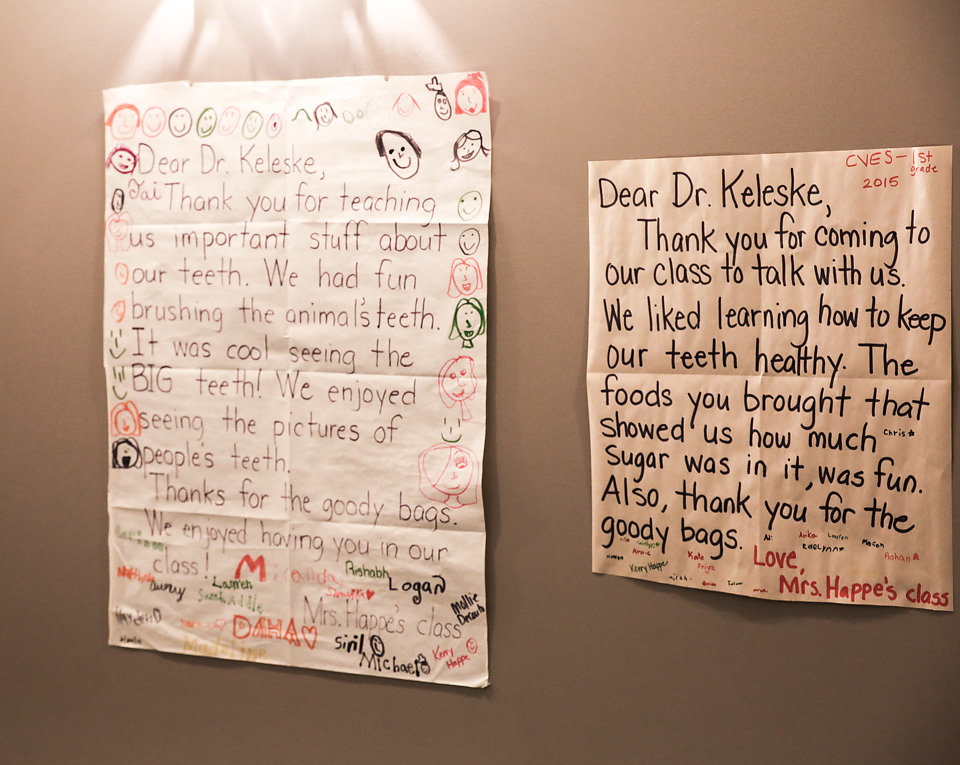 Dear Dr. Keleske,
Jai Thank you for teaching
us important stuff about
our teeth. We had fun
brushing the animal's teeth.
It was cool seeing the
BIG teeth! We enjoyed
seeing the pictures of
peoples teeth.
Thanks for the goody bags.
We enjoyed having you in our
class!
Rishabh
Logan
Avery
Lauren
Addie
Mrs. Happe's class
Mollie
DAHA
Siril
Michael
Kerry
Happe
Madeline
CVES - 1st
grade
2015
Dear Dr. Keleske,
Thank you for coming to
our class to talk with us.
We liked learning how to keep
our teeth healthy. The
foods you brought that
showed us how much Chris
sugar was in it, was fun.
Also, thank you for the
goody bags.
Anika Lauren
Raelynn Megan Rohan
Annie Kate
Kerry Happe Priya
Love,
Mrs. Happe's class